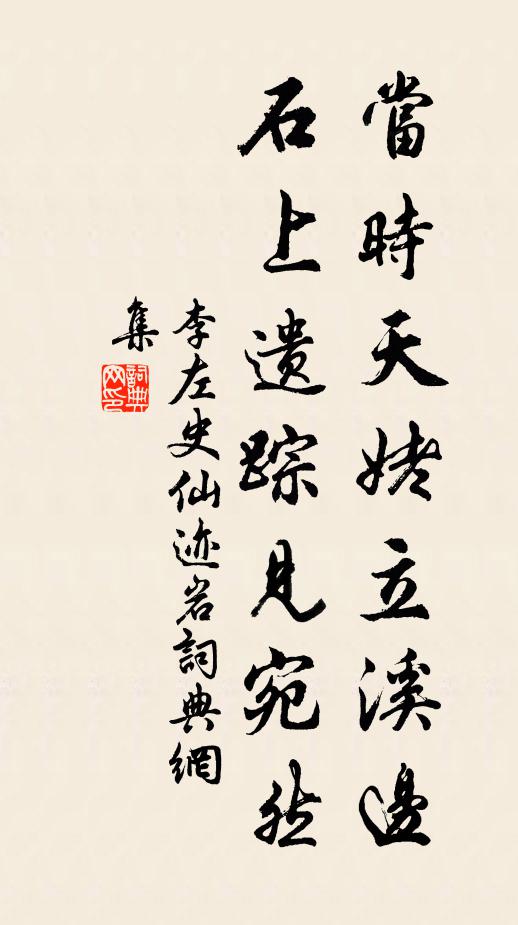 當時天姥立溪邊
石上遗踪見宛然
李左史仙迹岩詞典網
集
詞典
网印